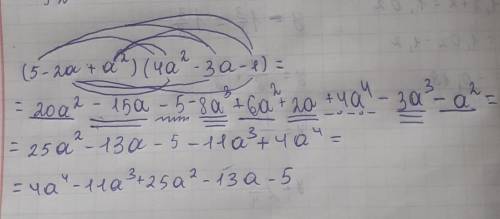 (5-2a+a²)(4a²-3a-1)=
=20a²-15a-5-8a³+6a²+2a+4a⁴-3a³-a²=
=25a²-13a-5-11a³+4a⁴=
=4a⁴-11a³+25a²-13a-5